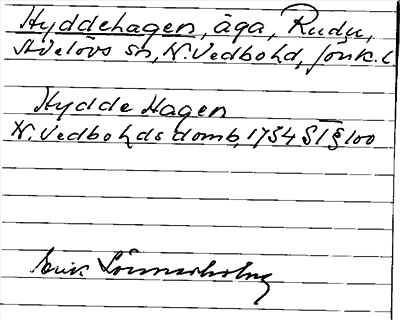 Hyddehagen, äga, Rudu,
Adelövs sn, N. Vedbo hd, Jönk. l.
Hydde Hagen
N. Vedbo hds domb, 1734 ST § 100
Erik Lönnerholm